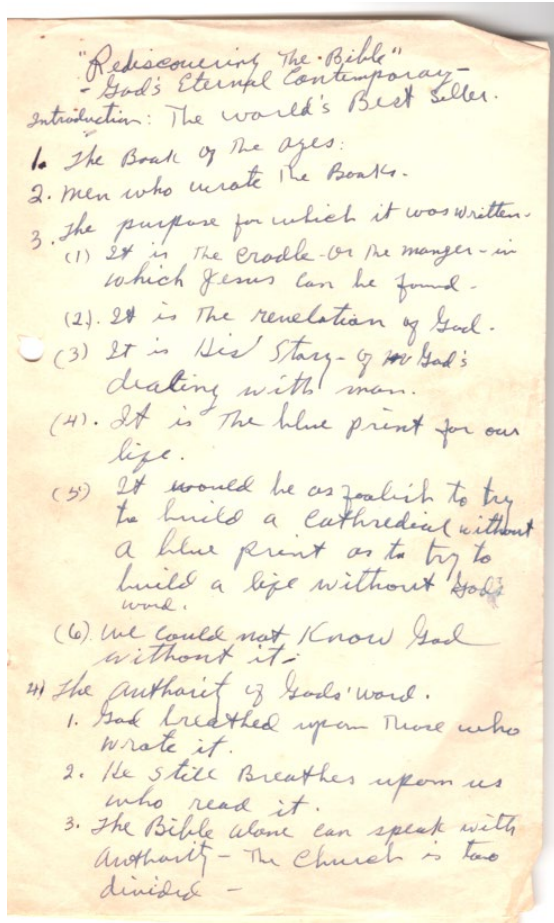 "Rediscovering The Bible"
- God's Eternal Contemporay -
Introduction: The world's Best Seller.
1. The Book of The ages:
2. Men who wrote The Books.
3. The purpose for which it was written.
(1) It is The Cradle - or The manger - in
which Jesus can be found.
(2). It is The revelation of God.
(3) It is His' Story - of God's
dealing with man.
(4). It is The blue print for our
life.
(5) It would be as foolish to try
to build a Cathredial without
a blue print as to try to
build a life without God's
word.
(6). We could not Know God
without it.
4) The Authorit of Gods' word.
1. God breathed upon Those who
wrote it.
2. He Still Breathes upon us
who read it.
3. The Bible alone can speak with
Authority - The Church is too
divided -